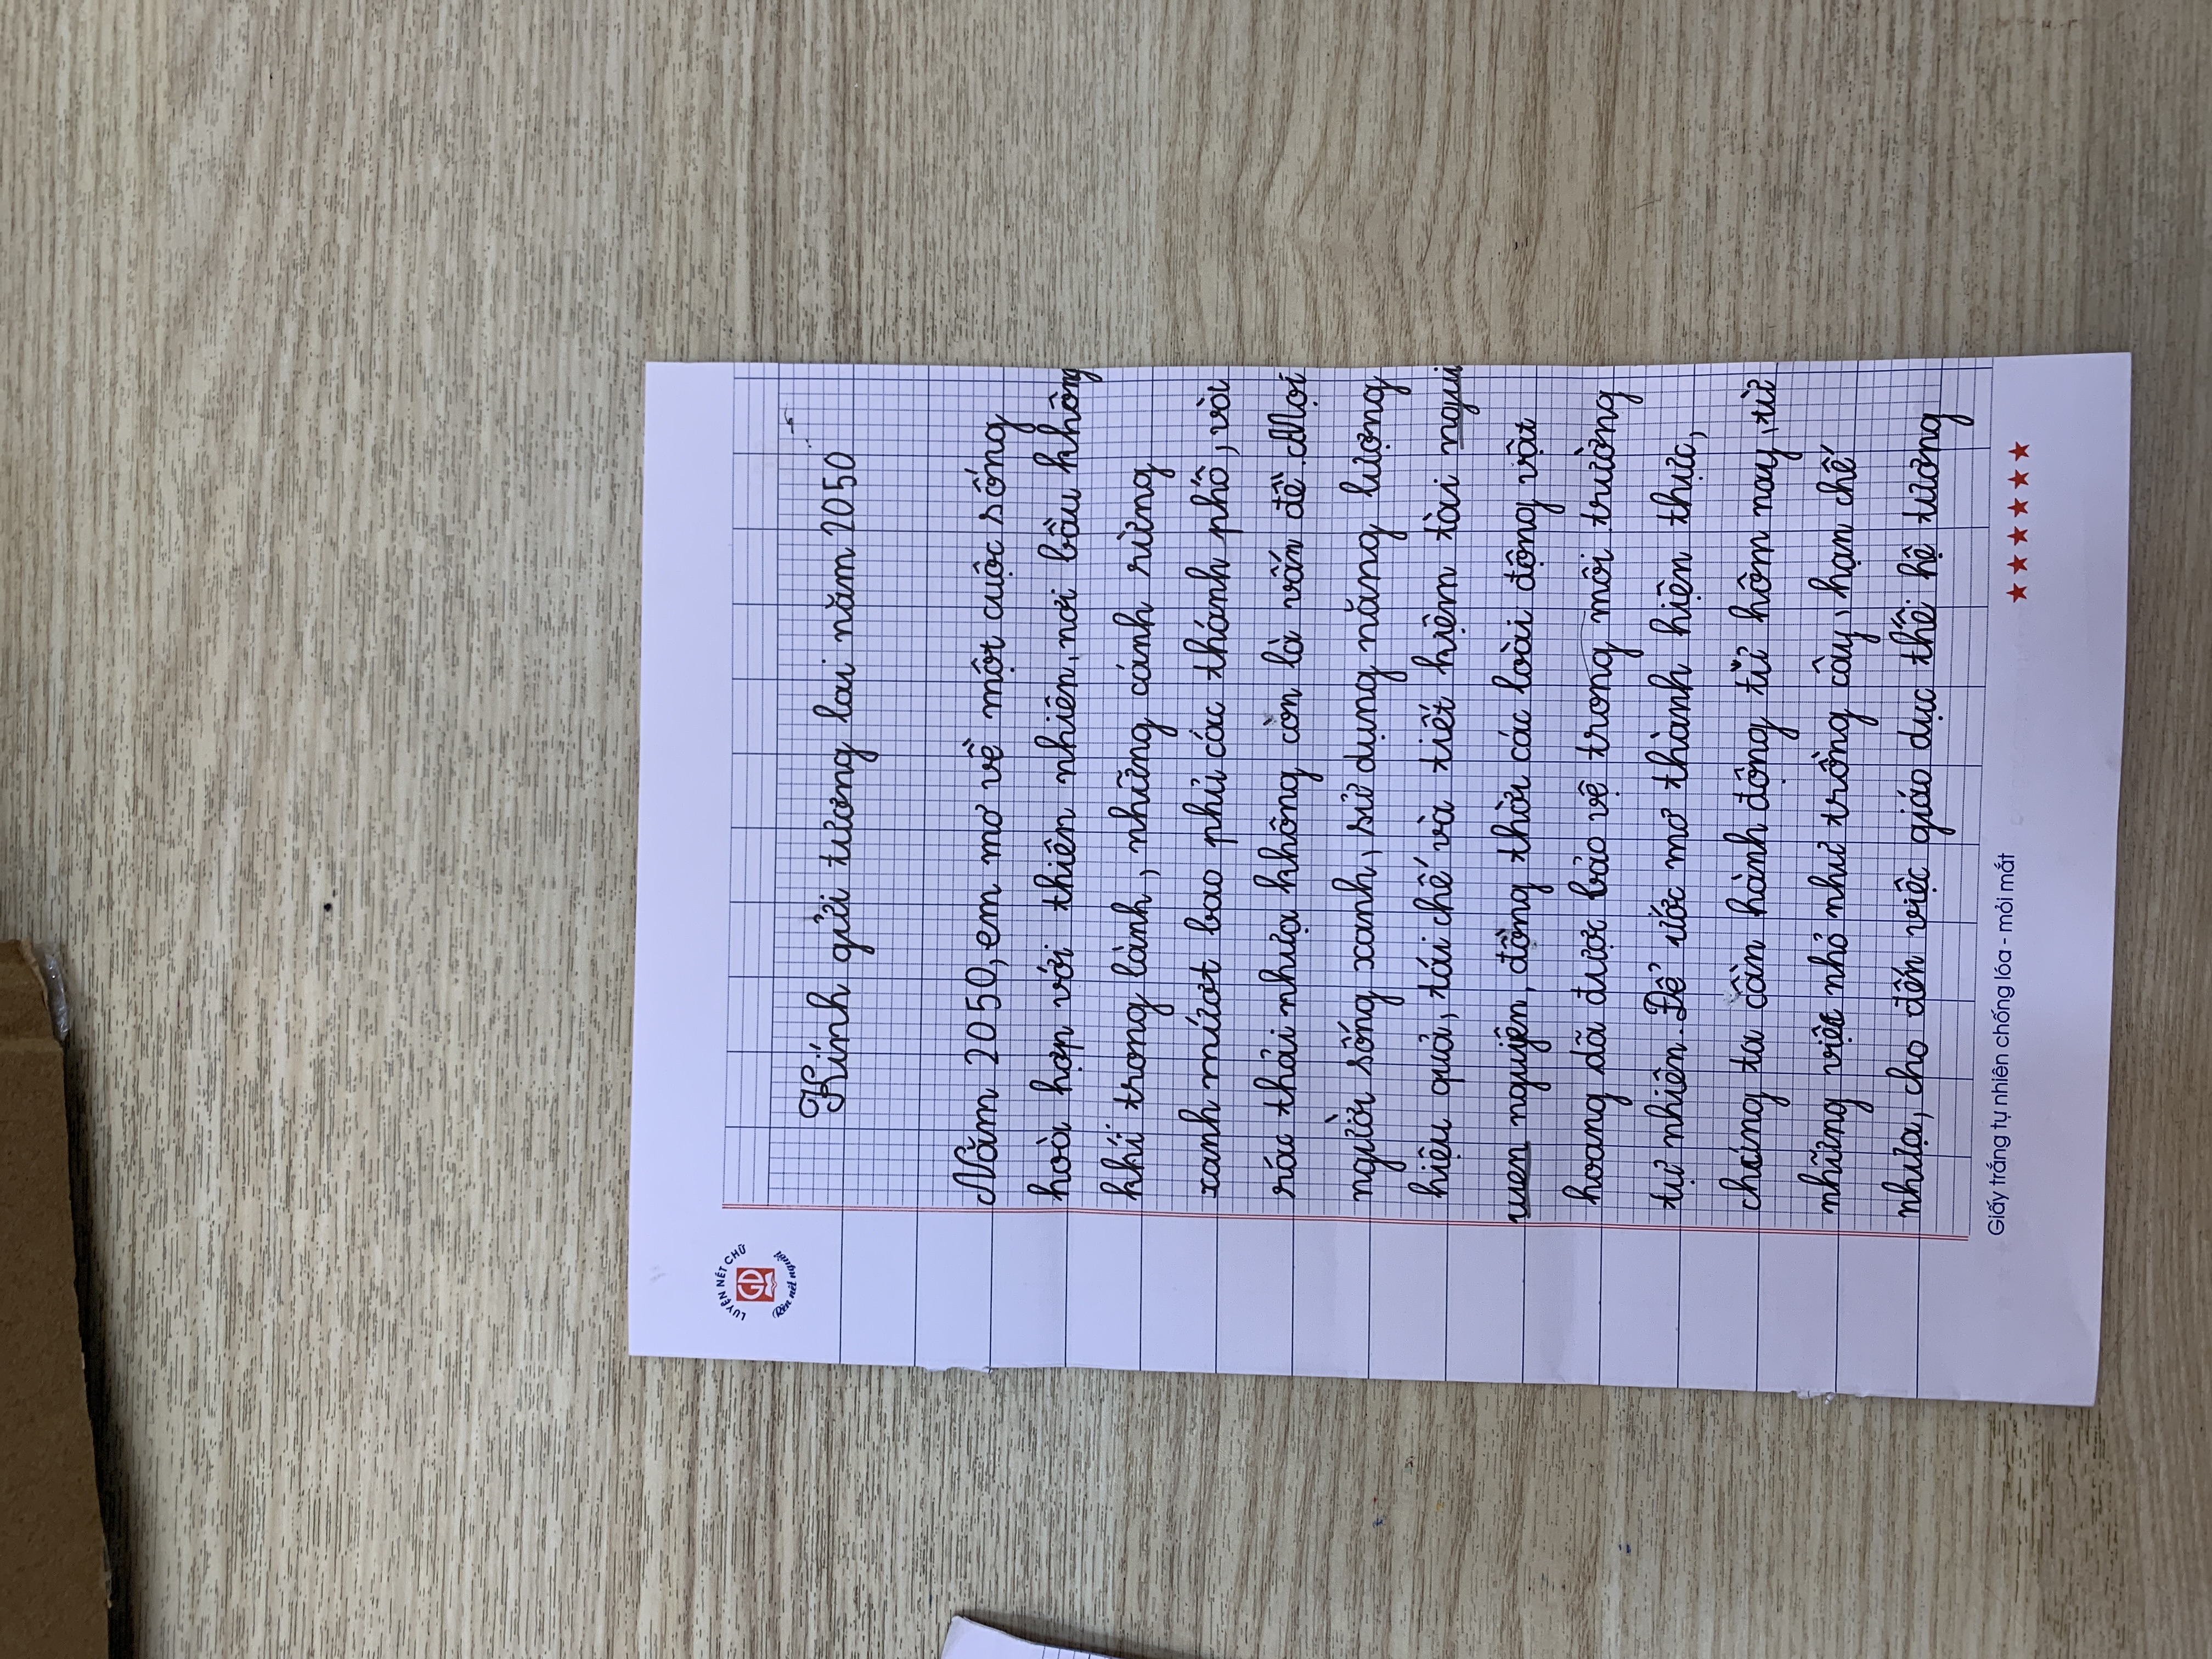 LUYỆN NÉT CHỮ
GD
Rèn nết người
Kính gửi tương lai năm 2050
Năm 2050, em mơ về một cuộc sống
hoà hợp với thiên nhiên, nơi bầu không
khí trong lành, những cánh rừng
xanh mướt bao phủ các thành phố, với
rác thải nhựa không còn là vấn đề. Mọi
người sống xanh, sử dụng năng lượng
hiệu quả, tái chế và tiết kiệm tài ngu
uen nguyên, đồng thời các loài động vật
hoang dã được bảo vệ trong môi trường
tự nhiên. Để ước mơ thành hiện thực,
chúng ta cần hành động từ hôm nay, từ
những việc nhỏ như trồng cây, hạn chế
nhựa, cho đến việc giáo dục thế hệ tương
Giấy trắng tự nhiên chống lóa - mỏi mắt